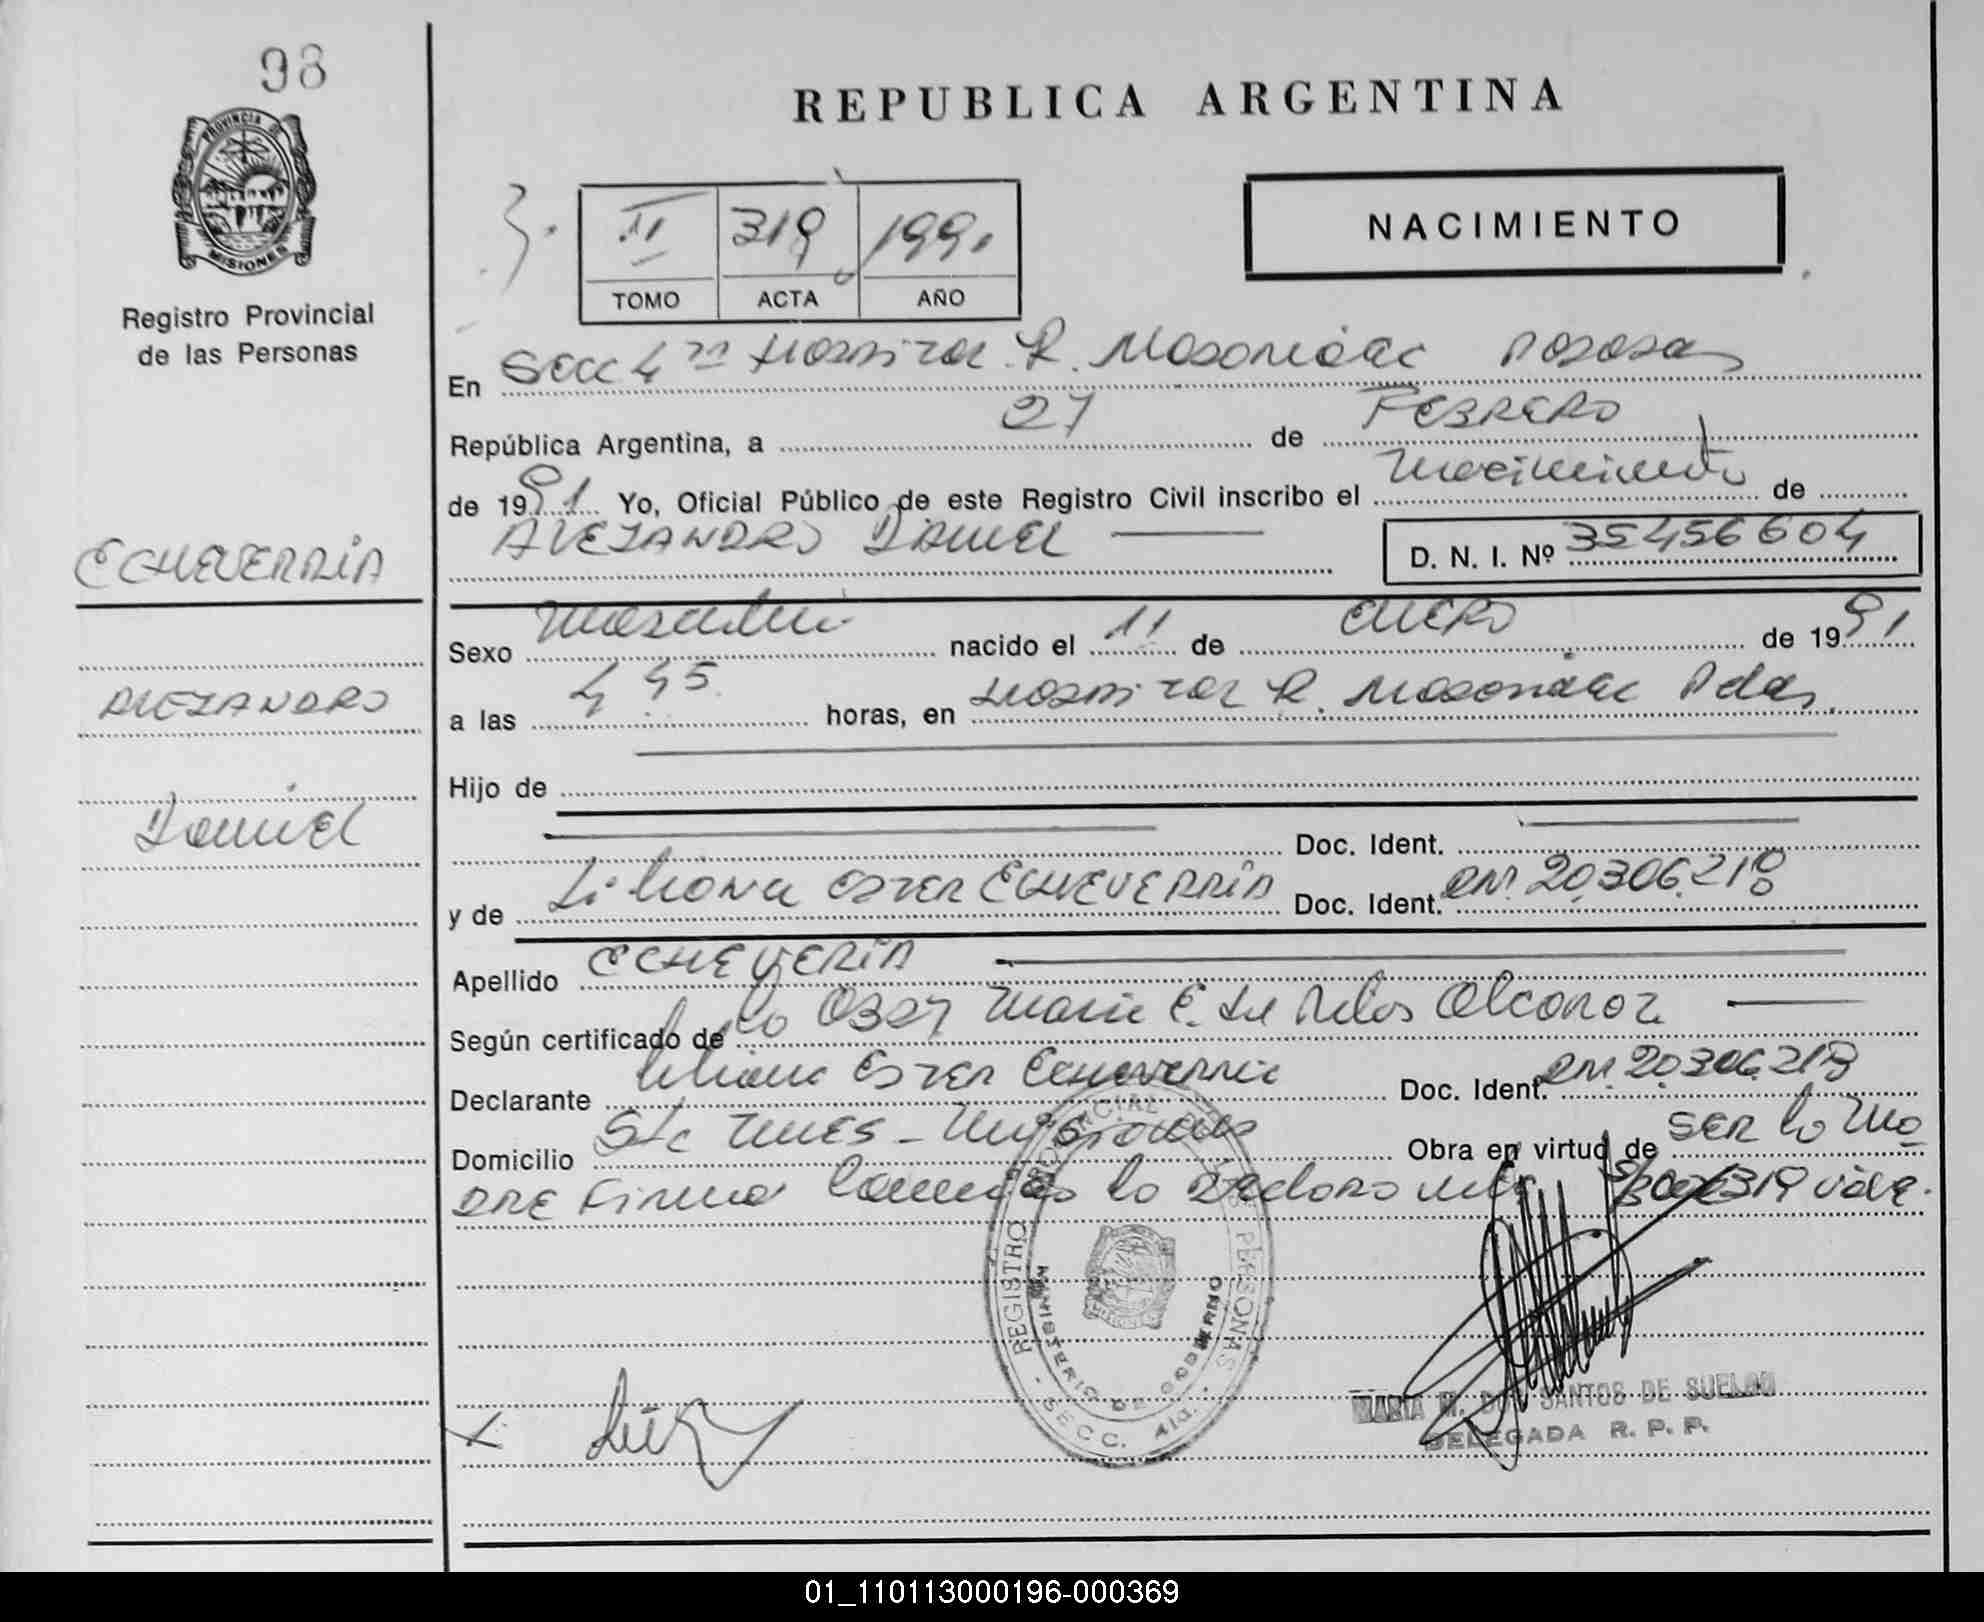 98
REPUBLICA ARGENTINA
PROVINCIA DE
MISIONES
II 319 1991
TOMO ACTA AÑO
NACIMIENTO
Registro Provincial
de las Personas
En Secc 4ta Hospital R. Madariaga Posadas
República Argentina, a 27 de FEBRERO
de 1991 Yo, Oficial Público de este Registro Civil inscribo el nacimiento de
ALEJANDRO DANIEL
D. N. I. Nº 35456604
ECHEVERRIA
ALEJANDRO
DANIEL
Sexo Masculino nacido el 11 de ENERO de 1991
a las 4 45 horas, en Hospital R. Madariaga Pdas.
Hijo de
Doc. Ident.
y de Liliana Ester ECHEVERRIA Doc. Ident. DNI 20.306.218
Apellido ECHEVERIA
Según certificado de María E. de
Declarante Liliana Ester Echeverria Doc. Ident. DNI. 20.306.218
Domicilio Sta Ines - Misiones Obra en virtud de SER la Ma
DRE Firma la 319 vale.
REGISTRO PROVINCIAL DE LAS PERSONAS
MINISTERIO DE GOBIERNO
SECC. 4ta.
MARIA M. DOS SANTOS DE SUELDO
DELEGADA R. P. P.
01_110113000196-000369